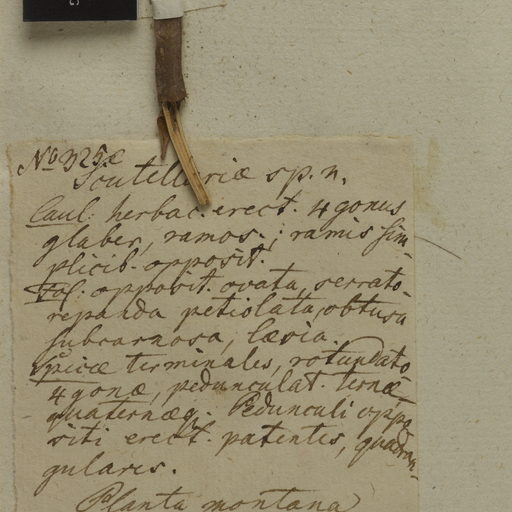 No 325æ
Scutellariæ sp. n.
Caul: herbac. erect. 4 gonus
glaber, ramos.; ramis sim-
plicib. opposit.
Fol: opposit. ovata, serrato-
repanda petiolata, obtusa
subcarnosa, læsia.
Spicæ terminales, rotundato
4 gonæ, pedunculat. ternæ
quaternæq. Pedunculi oppo
siti erect. patentes, quadran-
gulares.
Planta montana